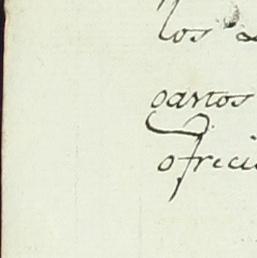 los
gastos
ofreci